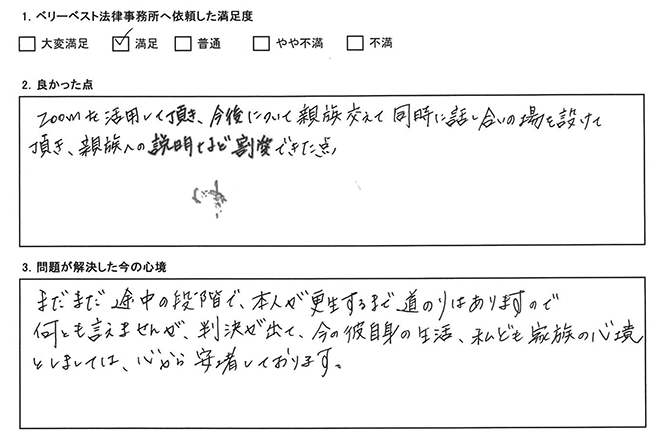 1. ベリーベスト法律事務所へ依頼した満足度
大変満足 満足 普通 やや不満 不満
2. 良かった点
zoomを活用して頂き、今後について親族交えて同時に話し合いの場を設けて
頂き、親族への説明など割愛できた点
3. 問題が解決した今の心境
まだまだ途中の段階で、本人が更生するまで道のりはありますので
何とも言えませんが、判決が出て、今の彼自身の生活、私ども家族の心境
としましては、心から安堵しております。